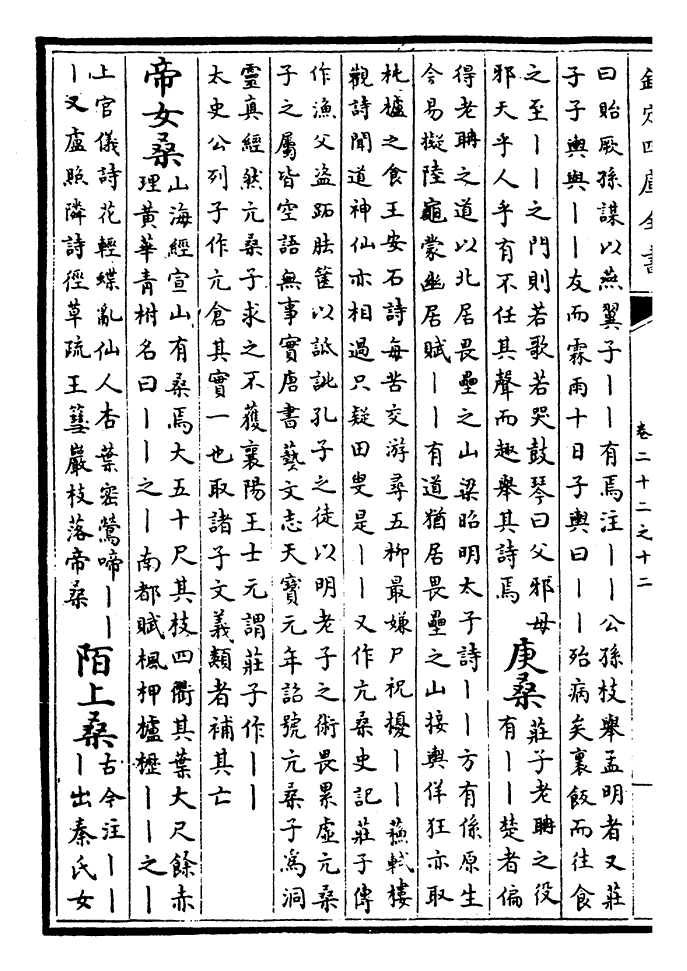 欽定四庫全書
卷二十二之十二
曰貽厥孫謀以燕翼子丨丨有焉注丨丨公孫枝舉孟明者又莊
子子輿與丨丨友而霖雨十日子輿曰丨丨殆病矣裹飯而往食
之至丨丨之門則若歌若哭鼓琴曰父邪母
邪天乎人乎有不任其聲而趣舉其詩焉
庚桑
莊子老聃之役
有丨丨楚者偏
得老聃之道以北居畏壘之山梁昭明太子詩丨丨方有係原生
今易擬陸龜蒙幽居賦丨丨有道猶居畏壘之山接輿佯狂亦取
杶櫨之食王安石詩每苦交游尋五柳最嫌尸祝擾丨丨蘇軾樓
觀詩聞道神仙亦相過只疑田叟是丨丨又作亢桑史記莊子傳
作漁父盜跖胠篋以詆訿孔子之徒以明老子之術畏累虛亢桑
子之屬皆空語無事實唐書藝文志天寶元年詔號亢桑子為洞
靈真經然亢桑子求之不獲襄陽王士元謂莊子作丨丨
太史公列子作亢倉其實一也取諸子文義類者補其亡
帝女桑
山海經宣山有桑焉大五十尺其枝四衢其葉大尺餘赤
理黃華青柎名曰丨丨之丨南都賦楓柙櫨櫪丨丨之丨
上官儀詩花輕蝶亂仙人杏葉密鶯啼丨丨
丨又盧照隣詩徑草疏王篲巖枝落帝桑
陌上桑
古今注丨丨
丨出秦氏女